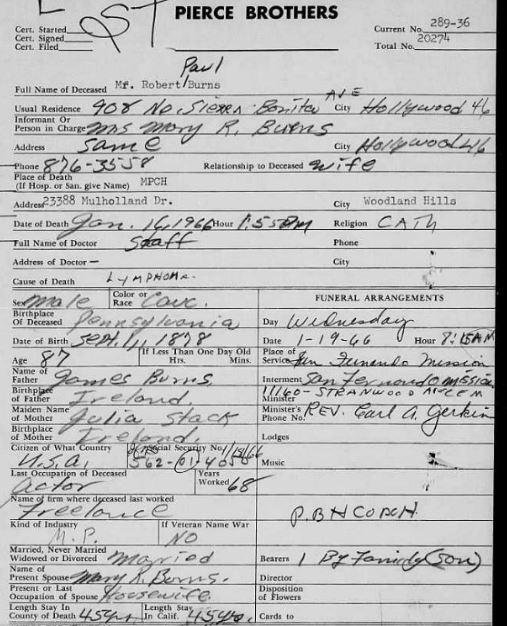 PIERCE BROTHERS
Cert. Started
Cert. Signed
Cert. Filed
Current No. 289-36
Total No. 20274
Paul
Full Name of Deceased Mr. Robert Burns
AVE
Usual Residence 908 No. Sierra Bonita City Hollywood 46
Informant Or
Person in Charge Mrs Mary R. Burns
Address Same City Hollywood 46
Phone 876-3558 Relationship to Deceased wife
Place of Death
(If Hosp. or San. give Name) MPCH
Address 23388 Mulholland Dr. City Woodland Hills
Date of Death Jan. 16, 1966 Hour 1:55 PM Religion CATH
Full Name of Doctor Staff Phone
Address of Doctor — City
Cause of Death LYMPHOMA
Sex male Color or Race Cauc. FUNERAL ARRANGEMENTS
Birthplace
Of Deceased Pennsylvania Day Wednesday
Date of Birth Sept. 1, 1878 Date 1-19-66 Hour 8:15 AM
Age 87 If Less Than One Day Old Hrs. Mins. Place of Service San Fernando Mission
Name of
Father James Burns Interment San Fernando Mission
Birthplace
of Father Ireland 11160-STRANWOOD
Minister
Maiden Name
of Mother Julia Stack Minister's Phone No. REV. Earl A. Gerkin
Birthplace
of Mother Ireland. Lodges
Citizen of What Country Social Security No.
U.S.A. 562-01- Music
Last Occupation of Deceased Years
Actor Worked 68
Name of firm where deceased last worked
Freelance
P.B H COACH.
Kind of Industry If Veteran Name War
M.P. NO
Married, Never Married
Widowed or Divorced Married Bearers 1 By Family (Son)
Name of
Present Spouse Mary R. Burns. Director
Present or Last
Occupation of Spouse Housewife Disposition of Flowers
Length Stay In
County of Death 45 yrs Length Stay In Calif. 45 yrs. Cards to